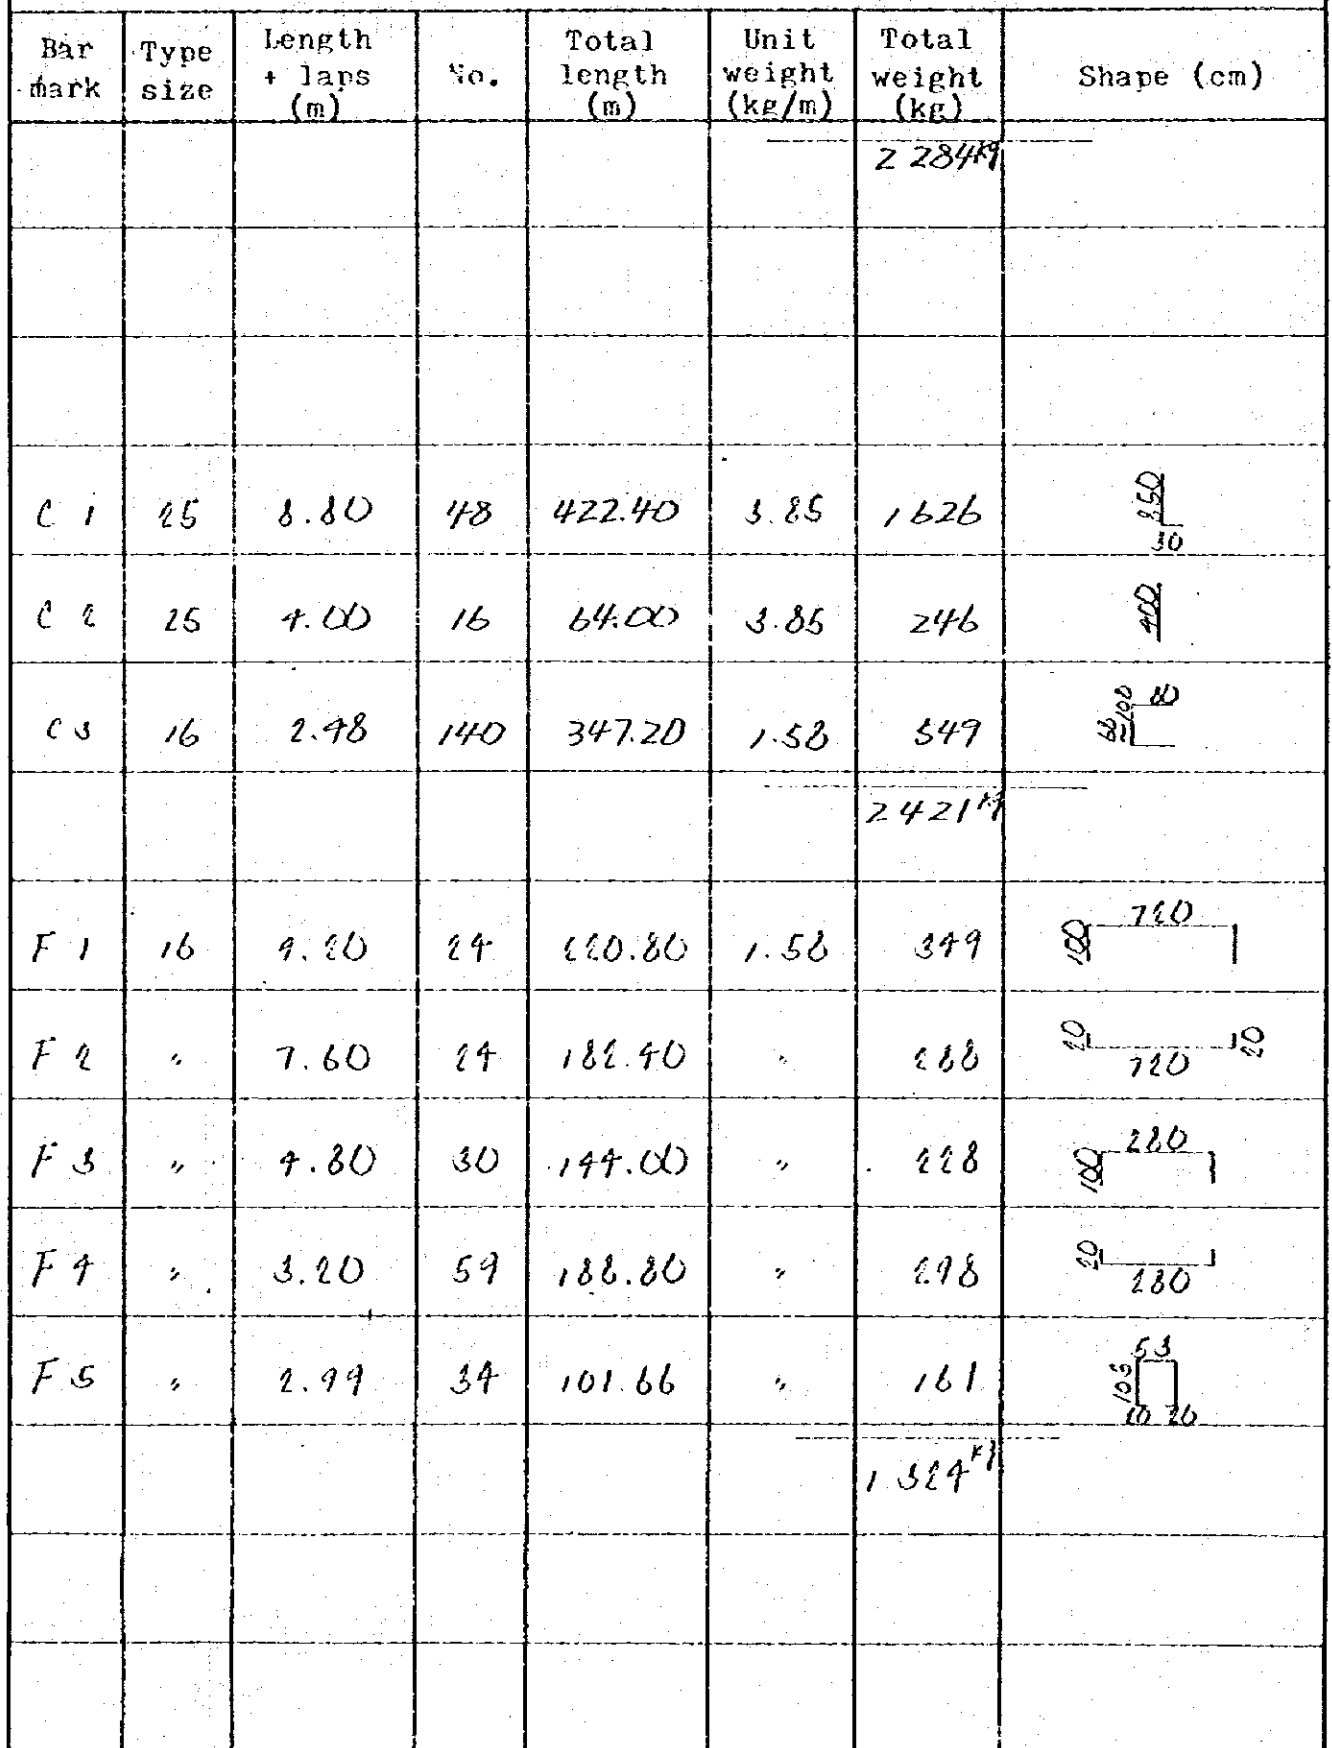 Bar mark Type size Length + laps (m) No. Total length (m) Unit weight (kg/m) Total weight (kg) Shape (cm)
2 284 kg
C 1 25 8.80 48 422.40 3.85 1626 850 30
C 2 25 4.00 16 64.00 3.85 246 400
C 3 16 2.48 140 347.20 1.58 549 68~108 80
2 421 kg
F 1 16 9.20 24 220.80 1.58 349 100 720
F 2 " 7.60 24 182.40 " 288 20 720 20
F 3 " 4.80 30 144.00 " 228 100 280
F 4 " 3.20 59 188.80 " 298 20 280
F 5 " 2.99 34 101.66 " 161 103 53 20 20
1 324 kg